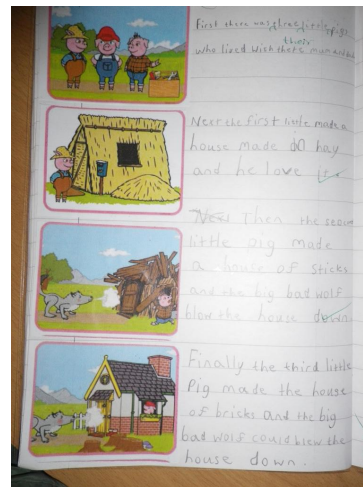 First there was three little pigs
their
who lived wish there mum and dad
Neer the first little made a
house made on hay
and he love it.
Then the second
little pig made
a house of sticks
and the big bad wolf
blow the house down.
Finally the third little
Pig made the house
of bricks and the big
bad wolf could blew the
house down.